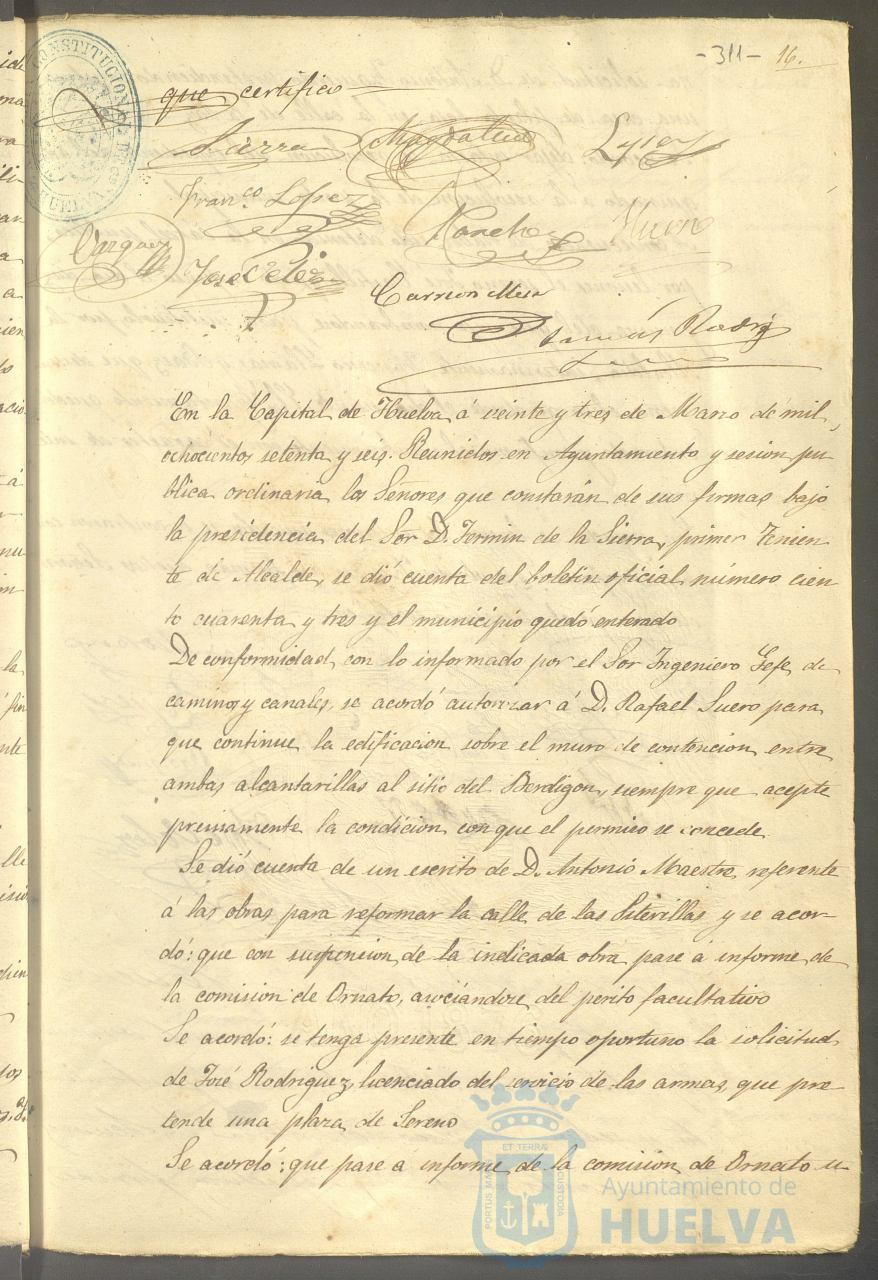 -311- 16.
que certifico
Sierra Magdalena Lopez
Fran.co Lopez
Vazquez Mancho
José Velez
Carrion Mesa
Tomás Rodrig
En la Capital de Huelva á veinte y tres de Marzo de mil
ochocientos setenta y seis. Reunidos en Ayuntamiento y sesion pu-
blica ordinaria los Señores que constarán de sus firmas bajo
la presidencia del Sor D. Fermin de la Sierra, primer Tenien-
te de Alcalde, se dió cuenta del boletin oficial número cien-
to cuarenta y tres y el municipio quedó enterado
De conformidad con lo informado por el Sor Ingeniero Gefe de
caminos y canales, se acordó autorizar á D. Rafael Suero para
que continue la edificacion sobre el muro de contencion entre
ambas alcantarillas al sitio del Berdigon, siempre que acepte
previamente la condicion con que el permiso se concede
Se dió cuenta de un escrito de D. Antonio Maestre referente
á las obras para reformar la calle de las Siterillas y se acor-
dó: que con suspension de la indicada obra pase á informe de
la comision de Ornato, asociándose del perito facultativo
Se acordó: se tenga presente en tiempo oportuno la solicitud
de José Rodriguez, licenciado del servicio de las armas, que pre-
tende una plaza de Sereno
Se acordó: que pase á informe de la comision de Ornato u
CONSTITUCIONAL
HUELVA
PORTUS MARIS ET TERRAE CUSTODIA
Ayuntamiento de
HUELVA